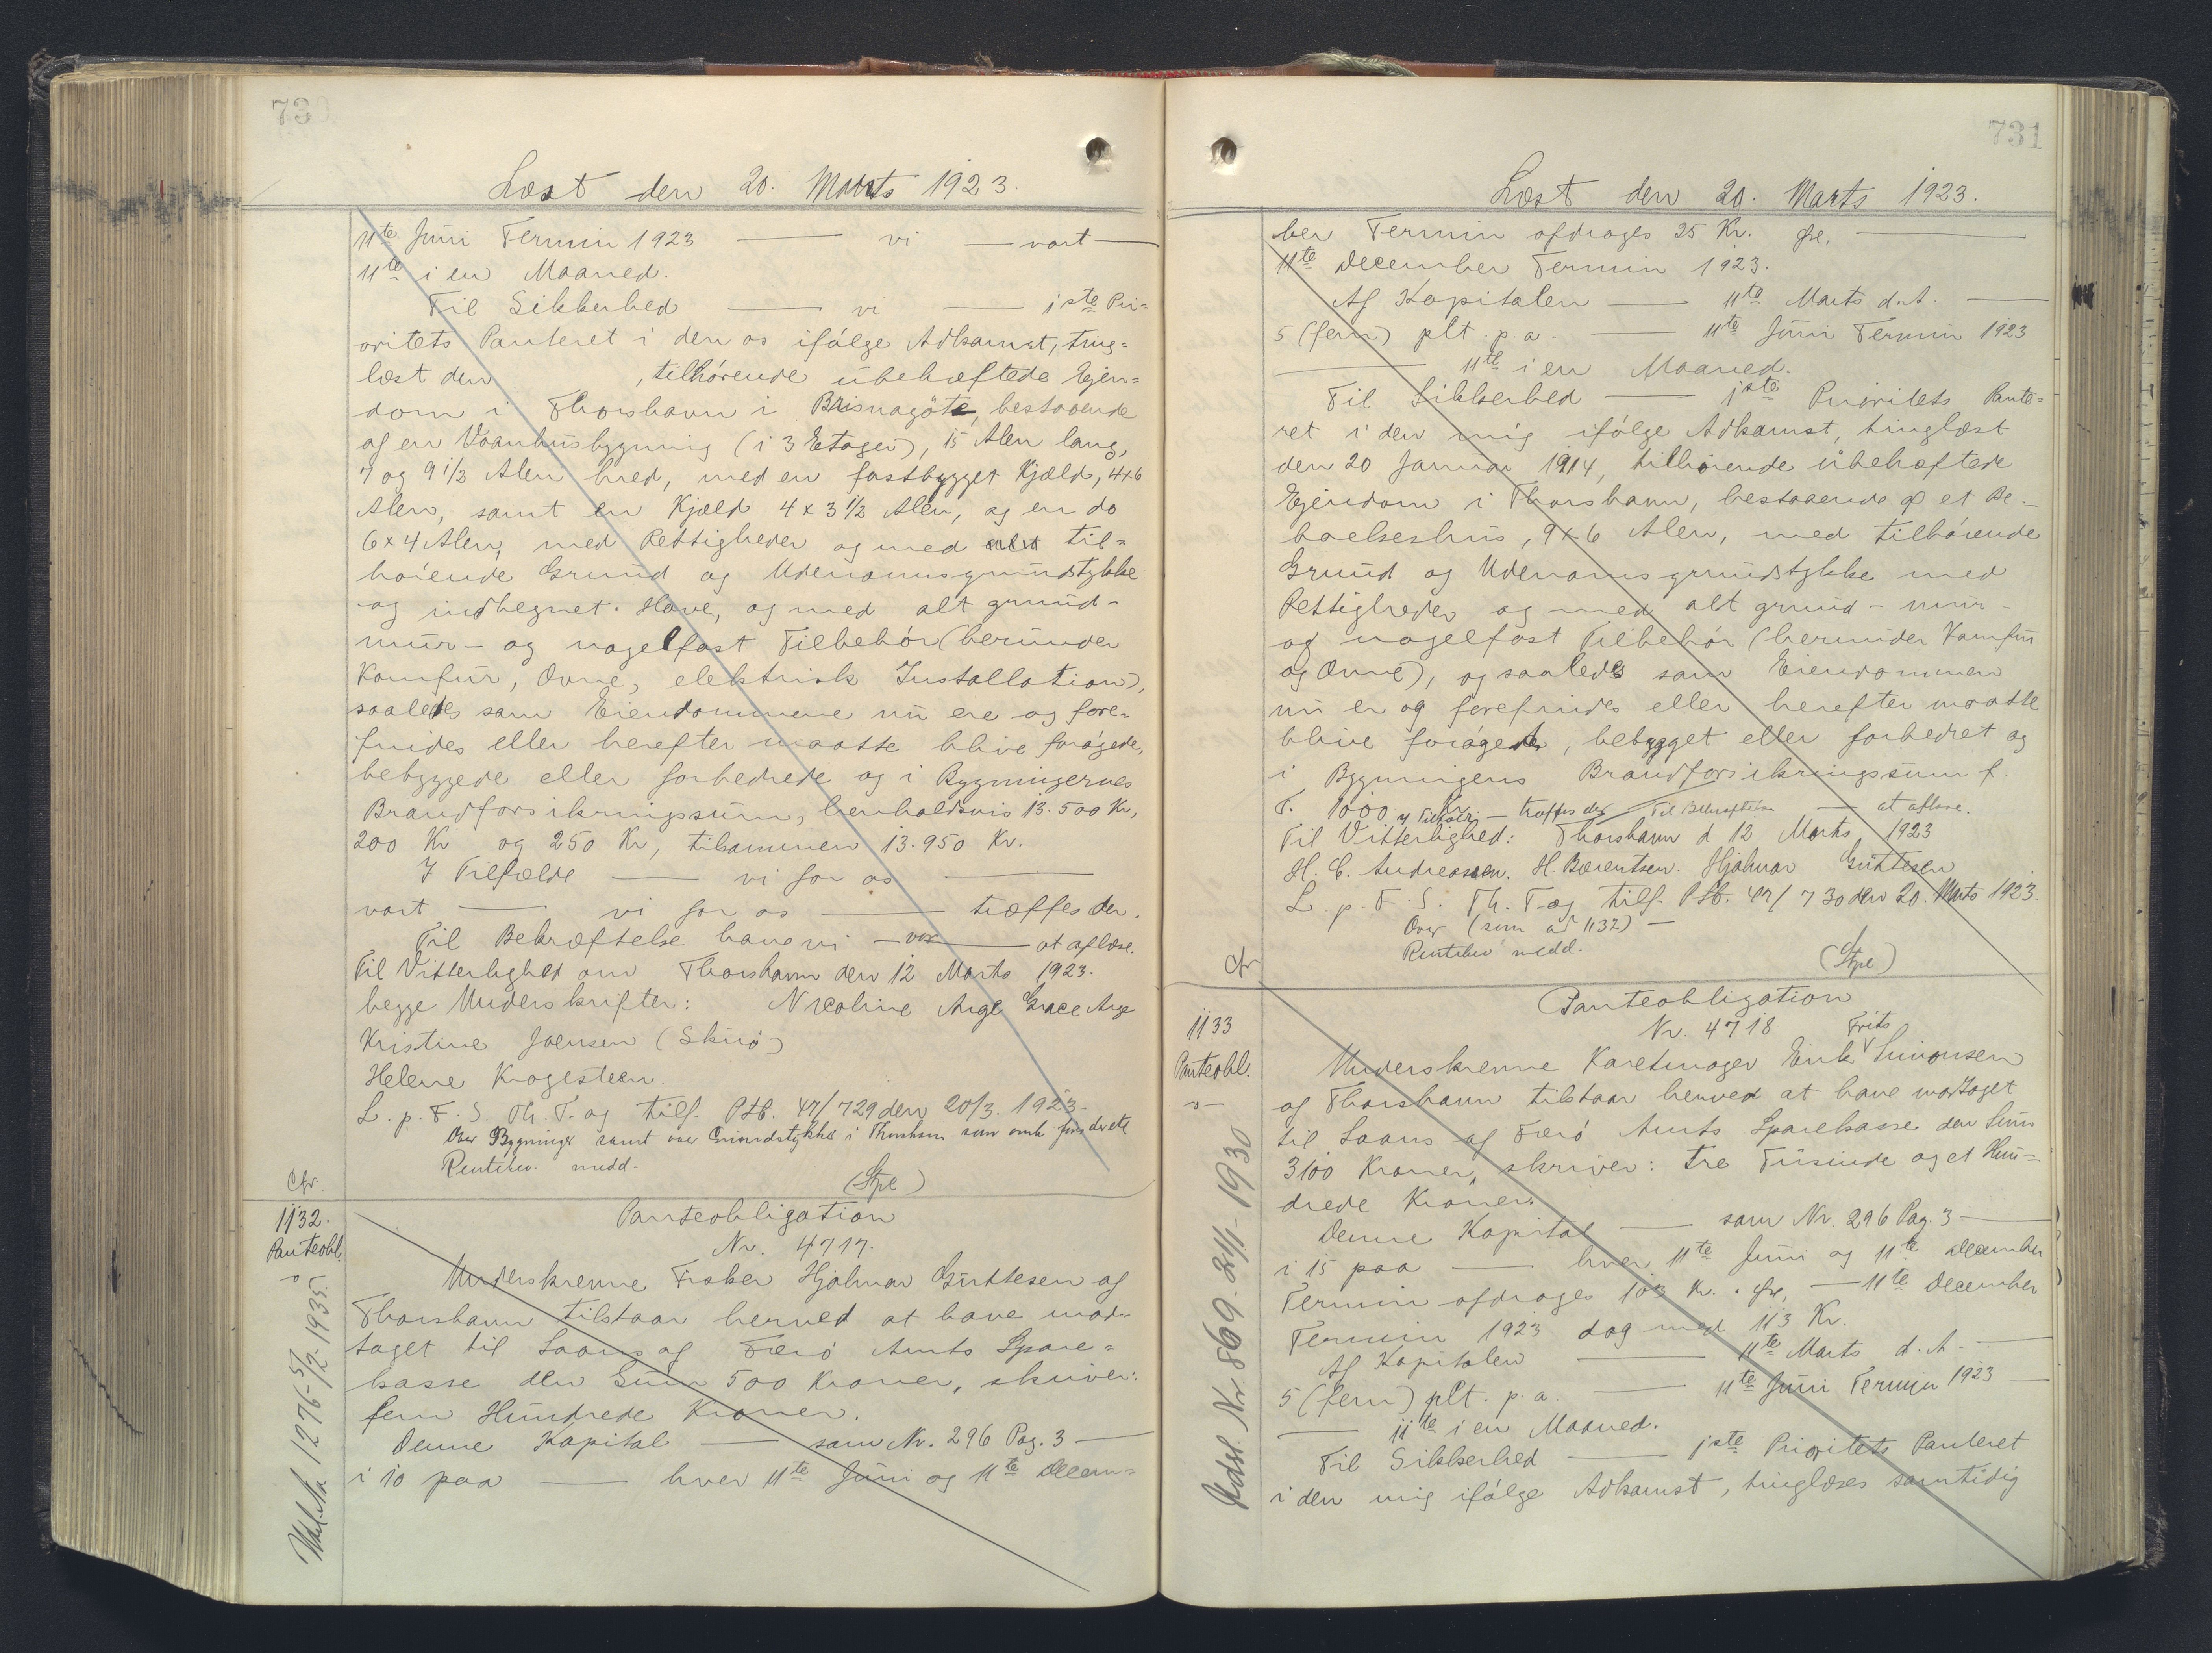 730
Læst den 20. Marts 1923.
11te Juni Termin 1923 — vi — vort —
11te i en Maaned.
Til Sikkerhed — vi — 1ste Pri-
oritets Panteret i den os ifølge Adkomst, ting-
læst den , tilhørende ubehæftede Ejen-
dom i Thorshavn i Bringsnagøte, bestaaende
af en Vaanhusbygning (i 3 Etager), 15 Alen lang,
7 og 9 1/2 Alen bred, med en fastbygget Kjæld, 4x6
Alen, samt en Kjæld 4 x 3 1/2 Alen, og en do
6x4 Alen, med Rettigheder og med til-
hørende Grund og Udenomsgrundstykke
og indhegnet Have, og med alt grund-
mur- og nagelfast Tilbehør (herunder
Komfur, Ovne, elektrisk Installation),
saaledes som Eiendommene nu ere og fore-
findes eller herefter maatte blive forøgede,
bebyggede eller forbedrede og i Bygningernes
Brandforsikringssum, henholdsvis 13.500 Kr,
200 Kr og 250 Kr, tilsammen 13.950 Kr.
I Tilfælde — vi for os —
vort — vi for os — træffes der.
Til Bekræftelse have vi — vor — at aflæse.
Til Vitterlighed om Thorshavn den 12 Marts 1923.
begge Underskrifter: Nicoline Arge Grace Arge
Kristine Joensen (Skuø)
Helene Krogesteen.
L. p. F. S. Th. T. og tilf. Ptb. 47/729 den 20/3. 1923.
Over Bygninger samt over Grundstykke i Thorshavn som
Rentebev. medd.
(Spl)
Cfr
1132.
Panteobl.
Udsl. Nr. 1276-5/12-1935.
Panteobligation
Nr. 4717.
Underskrevne Fisker Hjalmar Guttesen af
Thorshavn tilstaar herved at have mod-
taget til Laans af Færø Amts Spare-
kasse den Sum 500 Kroner, skriver:
fem Hundrede Kroner.
Denne Kapital — som Nr. 296 Pag. 3 —
i 10 paa — hver 11te Juni og 11te Decem-
731
Læst den 20. Marts 1923.
ber Termin afdrages 25 Kr. Øre, —
11te December Termin 1923.
Af Kapitalen — 11te Marts d.A. —
5 (fem) pCt. p.a. — 11te Juni Termin 1923
— 11te i en Maaned.
Til Sikkerhed — 1ste Prioritets Pante-
ret i den mig ifølge Adkomst, tinglæst
den 20 Januar 1914, tilhørende ubehæftede
Ejendom i Thorshavn, bestaaende af et Be-
boelseshus, 9x6 Alen, med tilhørende
Grund og Udenomsgrundstykke med
Rettigheder og med alt grund- mur-
og nagelfast Tilbehør (herunder Komfur
og Ovne), og saaledes som Eiendommen
nu er og forefindes eller herefter maatte
blive forøget, bebygget eller forbedret og
i Bygningens Brandforsikringssum f.
T. 1000 Kr. I Tilfælde — træffes der. Til Bekræftelse — at aflæse.
Til Vitterlighed: Thorshavn d 12 Marts 1923
H. C. Andreassen. H. Bærentsen. Hjalmar Guttesen
L. p. F. S. Th. T. og tilf. Ptb. 47/730 den 20. Marts 1923.
Over (som ad 1132) —
Rentebev medd.
(Spl)
Cfr
1133
Panteobl.
Udsl. Nr. 869-21/1-1930
Panteobligation
Nr. 4718
Frits
Underskrevne Karetmager Eirik Simonsen
af Thorshavn tilstaar herved at have modtaget
til Laans af Færø Amts Sparekasse den Sum
3100 Kroner, skriver: tre Tusinde og et Hun-
drede Kroner.
Denne Kapital — som Nr. 296 Pag. 3 —
i 15 paa — hver 11te Juni og 11te December
Termin afdrages 103 Kr. Øre, — 11te December
Termin 1923 dog med 113 Kr.
Af Kapitalen — 11te Marts d. A. —
5 (fem) pCt. p. a. — 11te Juni Termin 1923 —
— 11te i en Maaned.
Til Sikkerhed — 1ste Prioritets Panteret
i den mig ifølge Adkomst, tinglæses samtidig